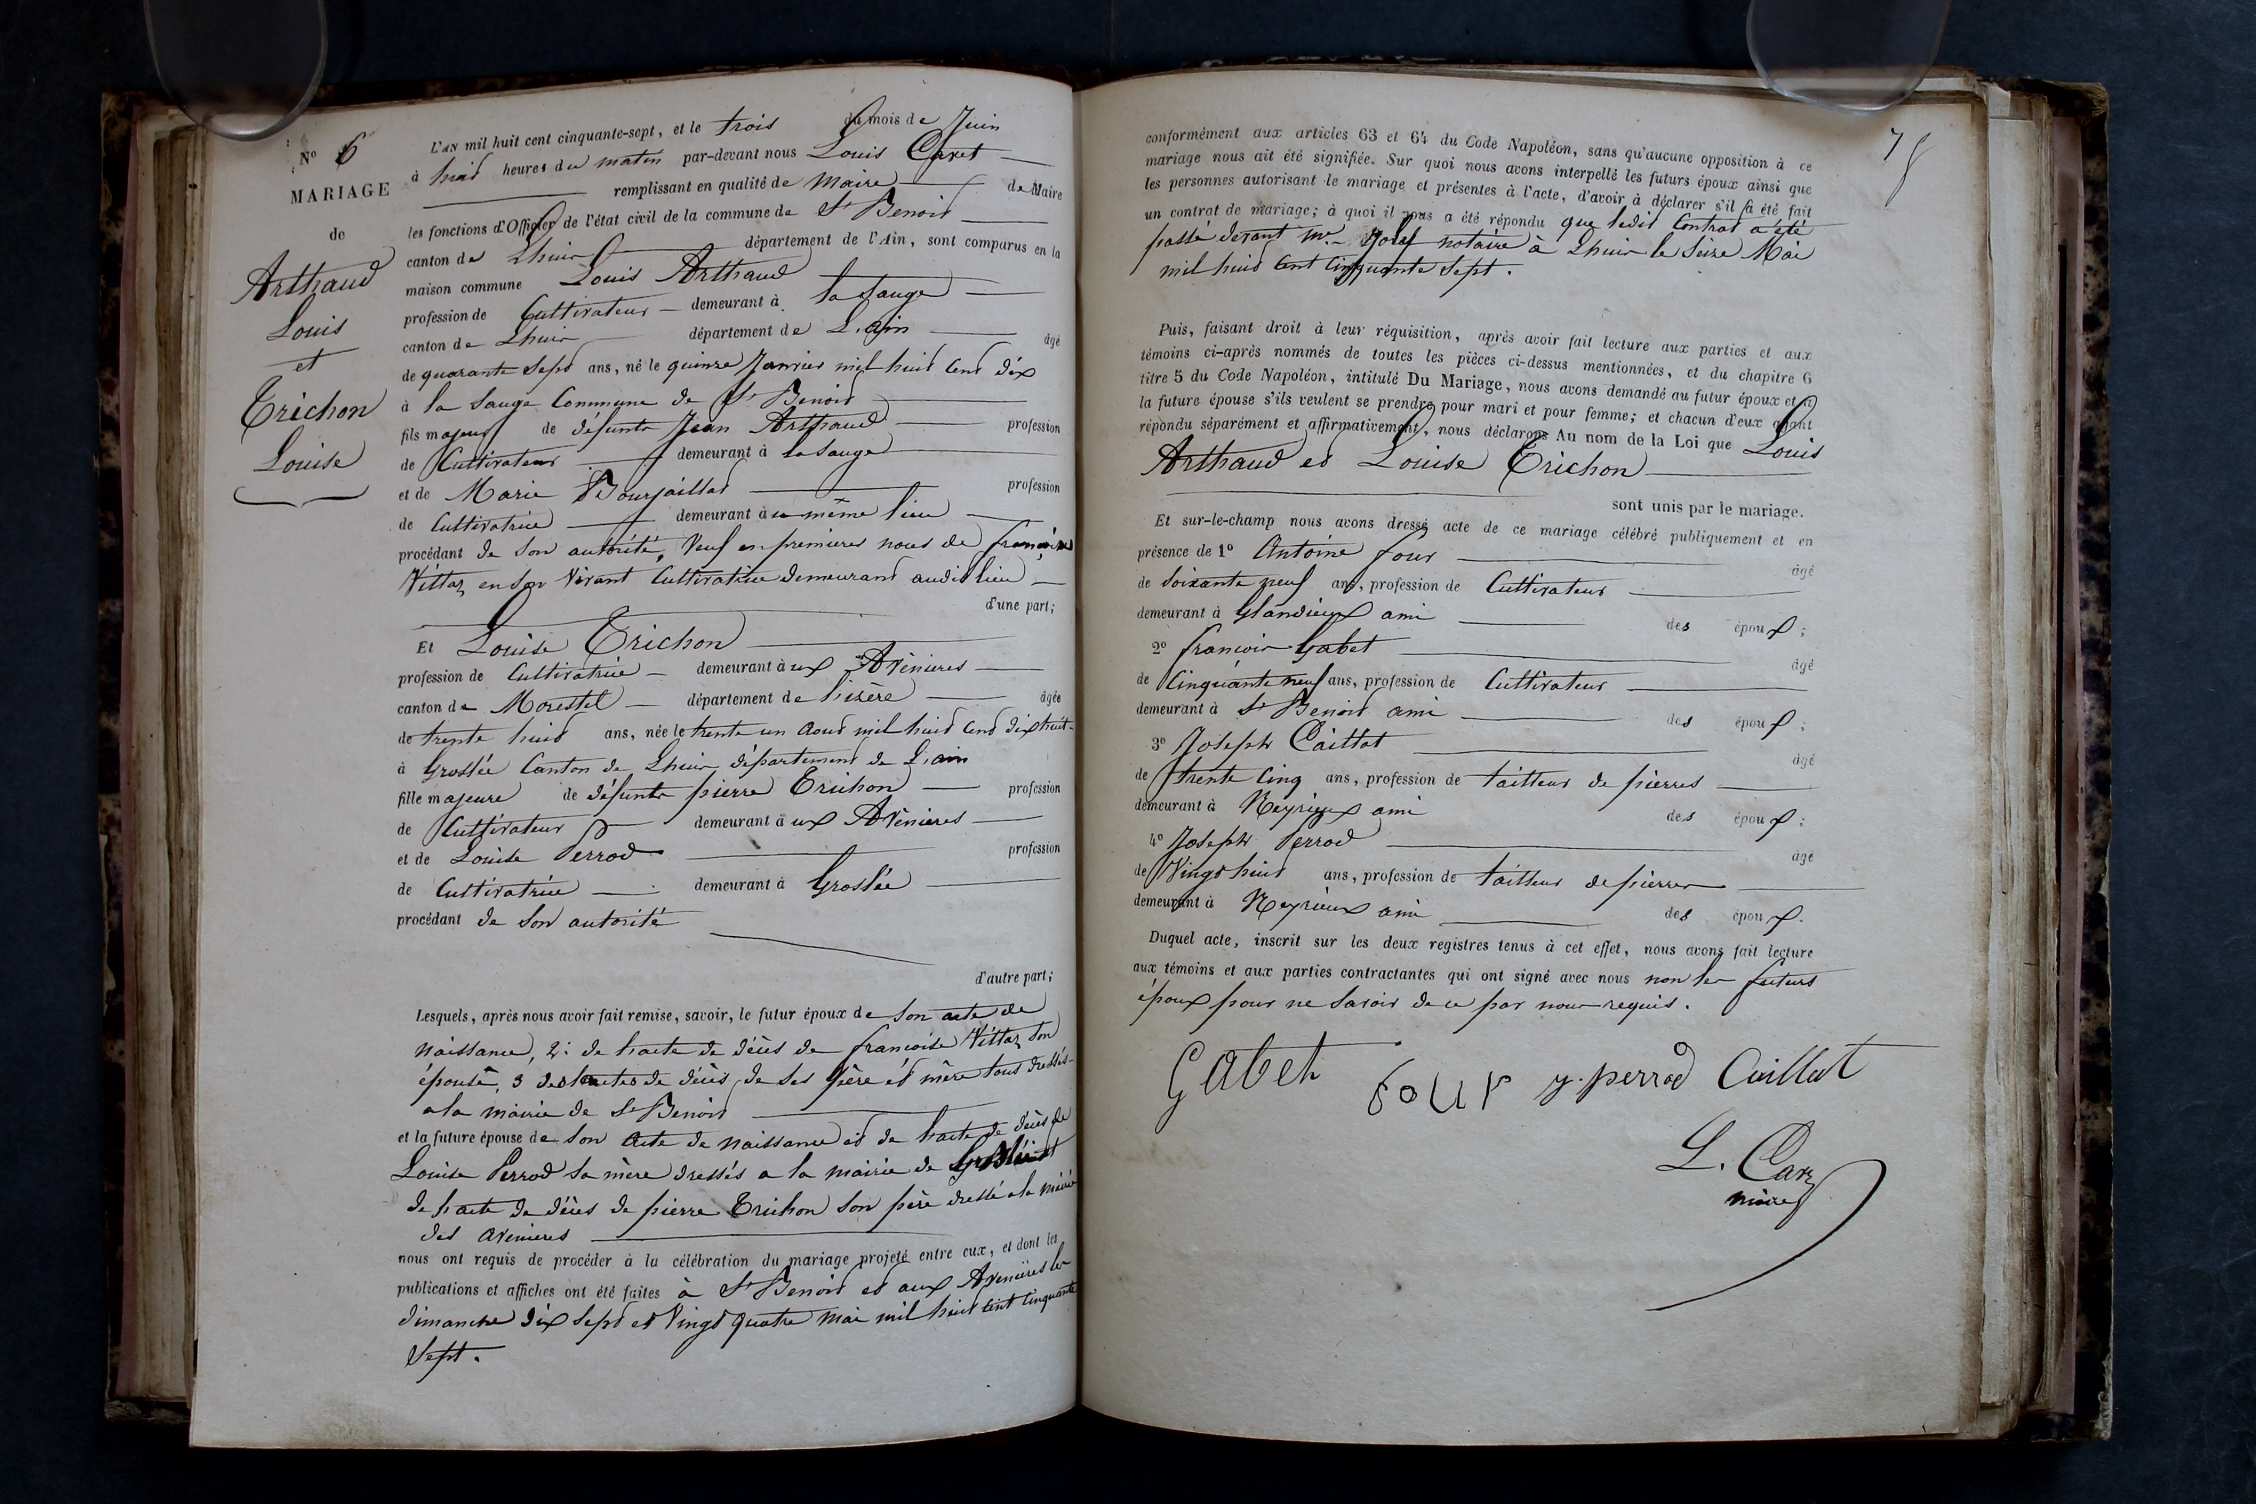 N° 6
MARIAGE
de
Arthaud
Louis
et
Trichon
Louise
L'AN mil huit cent cinquante-sept, et le trois du mois de Juin
à huit heures du matin par-devant nous Louis Caret
remplissant en qualité de Maire de Maire
les fonctions d'Officier de l'état civil de la commune de St Benoit
canton de Lhuis département de l'Ain, sont comparus en la
maison commune Louis Arthaud
profession de Cultivateur demeurant à la Sauge
canton de Lhuis département de L'ain âgé
de quarante Sept ans, né le quinze Janvier mil huit Cent dix
à la Sauge Commune de St Benoit
fils majeur de défunts Jean Arthaud profession
de Cultivateur demeurant à La Sauge
et de Marie Bourjaillat profession
de Cultivatrice demeurant au même lieu
procédant de son autorité, Veuf en premieres noces de françoise
Vittaz en son Vivant Cultivatrice demeurant audit lieu
d'une part;
Et Louise Trichon
profession de Cultivatrice demeurant à ux Avénieres
canton de Morestel département de L'isère âgée
de trente huit ans, née le trente un aout mil huit Cent dix huit
à Groslée Canton de Lhuis département de L'ain
fille majeure de défunts pierre Trichon profession
de Cultivateur demeurant à ux Avénieres
et de Louise Perrod profession
de Cultivatrice demeurant à Groslée
procédant de son autorité
d'autre part;
Lesquels, après nous avoir fait remise, savoir, le futur époux de son acte de
naissance, 2: de l'acte de décès de francoise Vittaz son
épouse, 3 des actes de décès de ses père et mère tous dressés
a la mairie de St Benoit
et la future épouse de son acte de naissance et de l'acte de décès de
Louise Perrod sa mère dressés a la mairie de Groslée et
de l'acte de décès de pierre Trichon son père dressé a la mairie
des avenieres
nous ont requis de procéder à la célébration du mariage projeté entre eux, et dont les
publications et affiches ont été faites à St Benoit et aux Avenieres les
dimanche dix Sept et Vingt quatre mai mil huit cent cinquante
Sept.
75
conformément aux articles 63 et 64 du Code Napoléon, sans qu'aucune opposition à ce
mariage nous ait été signifiée. Sur quoi nous avons interpellé les futurs époux ainsi que
les personnes autorisant le mariage et présentes à l'acte, d'avoir à déclarer s'il a été fait
un contrat de mariage; à quoi il nous a été répondu que ledit Contrat a été
passé devant Me notaire à Lhuis le Seize Mai
mil huit Cent Cinquante Sept.
Puis, faisant droit à leur réquisition, après avoir fait lecture aux parties et aux
témoins ci-après nommés de toutes les pièces ci-dessus mentionnées, et du chapitre 6
titre 5 du Code Napoléon, intitulé Du Mariage, nous avons demandé au futur époux et à
la future épouse s'ils veulent se prendre pour mari et pour femme; et chacun d'eux ayant
répondu séparément et affirmativement, nous déclarons Au nom de la Loi que Louis
Arthaud et Louise Trichon
sont unis par le mariage.
Et sur-le-champ nous avons dressé acte de ce mariage célébré publiquement et en
présence de 1° Antoine four âgé
de Soixante neuf ans, profession de Cultivateur
demeurant à Glandieux ami des époux;
2° francois Gabet âgé
de Cinquante neuf ans, profession de Cultivateur
demeurant à St Benoit ami des époux;
3° Joseph Caillat âgé
de trente Cinq ans, profession de tailleur de pierres
demeurant à Neyrieux ami des époux;
4° Joseph Perrod âgé
de Vingt huit ans, profession de tailleur de pierres
demeurant à Neyrieux ami des époux.
Duquel acte, inscrit sur les deux registres tenus à cet effet, nous avons fait lecture
aux témoins et aux parties contractantes qui ont signé avec nous non les futurs
époux pour ne Savoir de ce par nous requis.
Gabet four J. perrod Caillat
L. Caret
maire